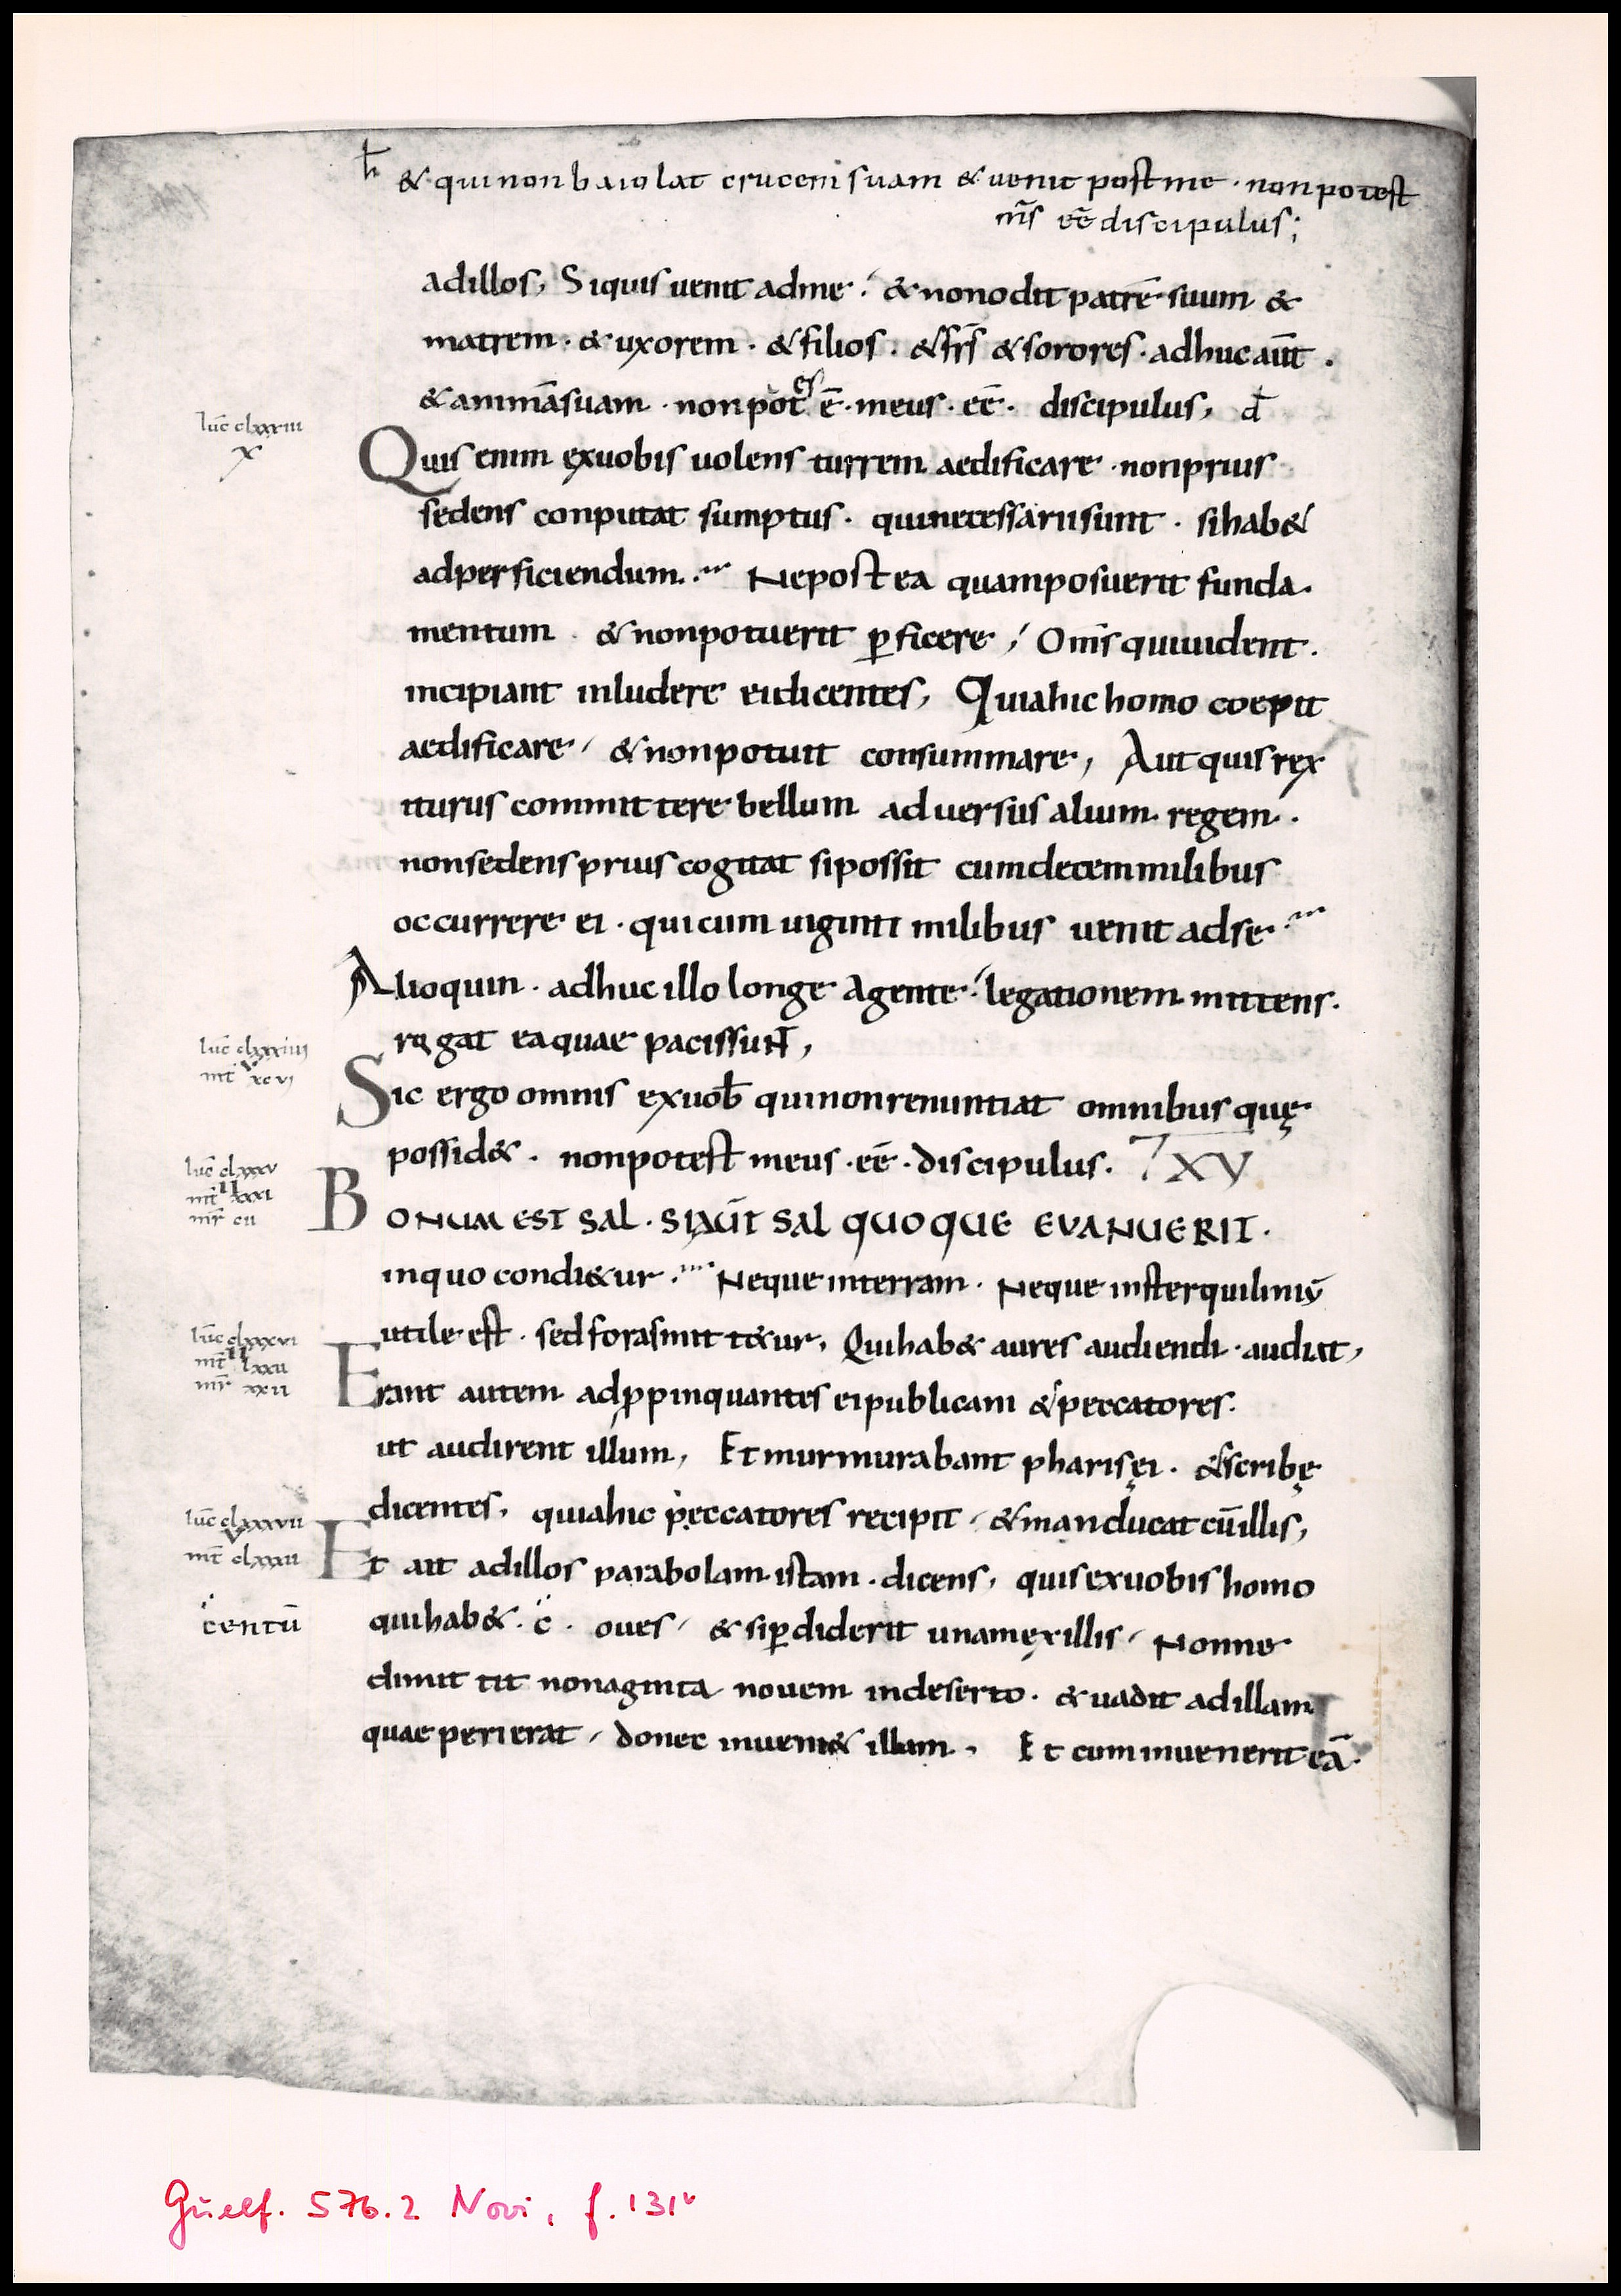 ħ & qui non baiolat crucem suam & uenit post me · non potest
m̄s eē discipulus;
ad illos, Si quis uenit ad me · & non odit patrē suum &
matrem · & uxorem · & filios · & fr̄s & sorores · adhuc aūt ·
& animā suam · non pot es ē · meus · eē · discipulus, đ
luc̄ clxxxiii
x
Quis enim ex uobis uolens turrem aedificare · non prius
sedens conputat sumptus · qui necessarii sunt · si hab&
ad perficiendum · Ne postea quam posuerit funda·
mentum · & non potuerit ꝑficere, Om̄s qui uident ·
incipiant inludere ei dicentes, Quia hic homo coepit
aedificare, & non potuit consummare, Aut quis rex
iturus committere bellum aduersus alium regem ·
non sedens prius cogitat si possit cum decem milibus
occurrere ei · qui cum uiginti milibus uenit ad se ·
Alioquin · adhuc illo longe agente · legationem mittens ·
rogat ea quae pacis sunt,
luc̄ clxxxiiii
v
mt̄ xcvi
Sic ergo omnis ex uob̄ qui non renuntiat omnibus quę
possid& · non potest meus · eē · discipulus · XV
luc̄ clxxxv
II
mt̄ xxxi
mr̄ cii
BONUM EST SAL · SI AŪT SAL QUOQUE EVANUERIT ·
in quo condi&ur · Neque in terram · Neque in sterquiliniū
utile est · sed foras mitt&ur, Qui hab& aures audiendi · audiat,
luc̄ clxxxvi
II
mt̄ lxxii
mr̄ xxii
Erant autem adpropinquantes ei publicani & peccatores ·
ut audirent illum, Et murmurabant pharisęi · & scribę
dicentes, quia hic peccatores recipit, & manducat cū illis,
luc̄ clxxxvii
v
mt̄ clxxxii
Et ait ad illos parabolam istam · dicens, quis ex uobis homo
centū
qui hab& · c · oues, & si ꝑdiderit unam ex illis, Nonne
dimittit nonaginta nouem in deserto · & uadit ad illam
quae perierat, donec inueni& illam, Et cum inuenerit eā ·
Guelf. 576.2 Novi, f. 131v